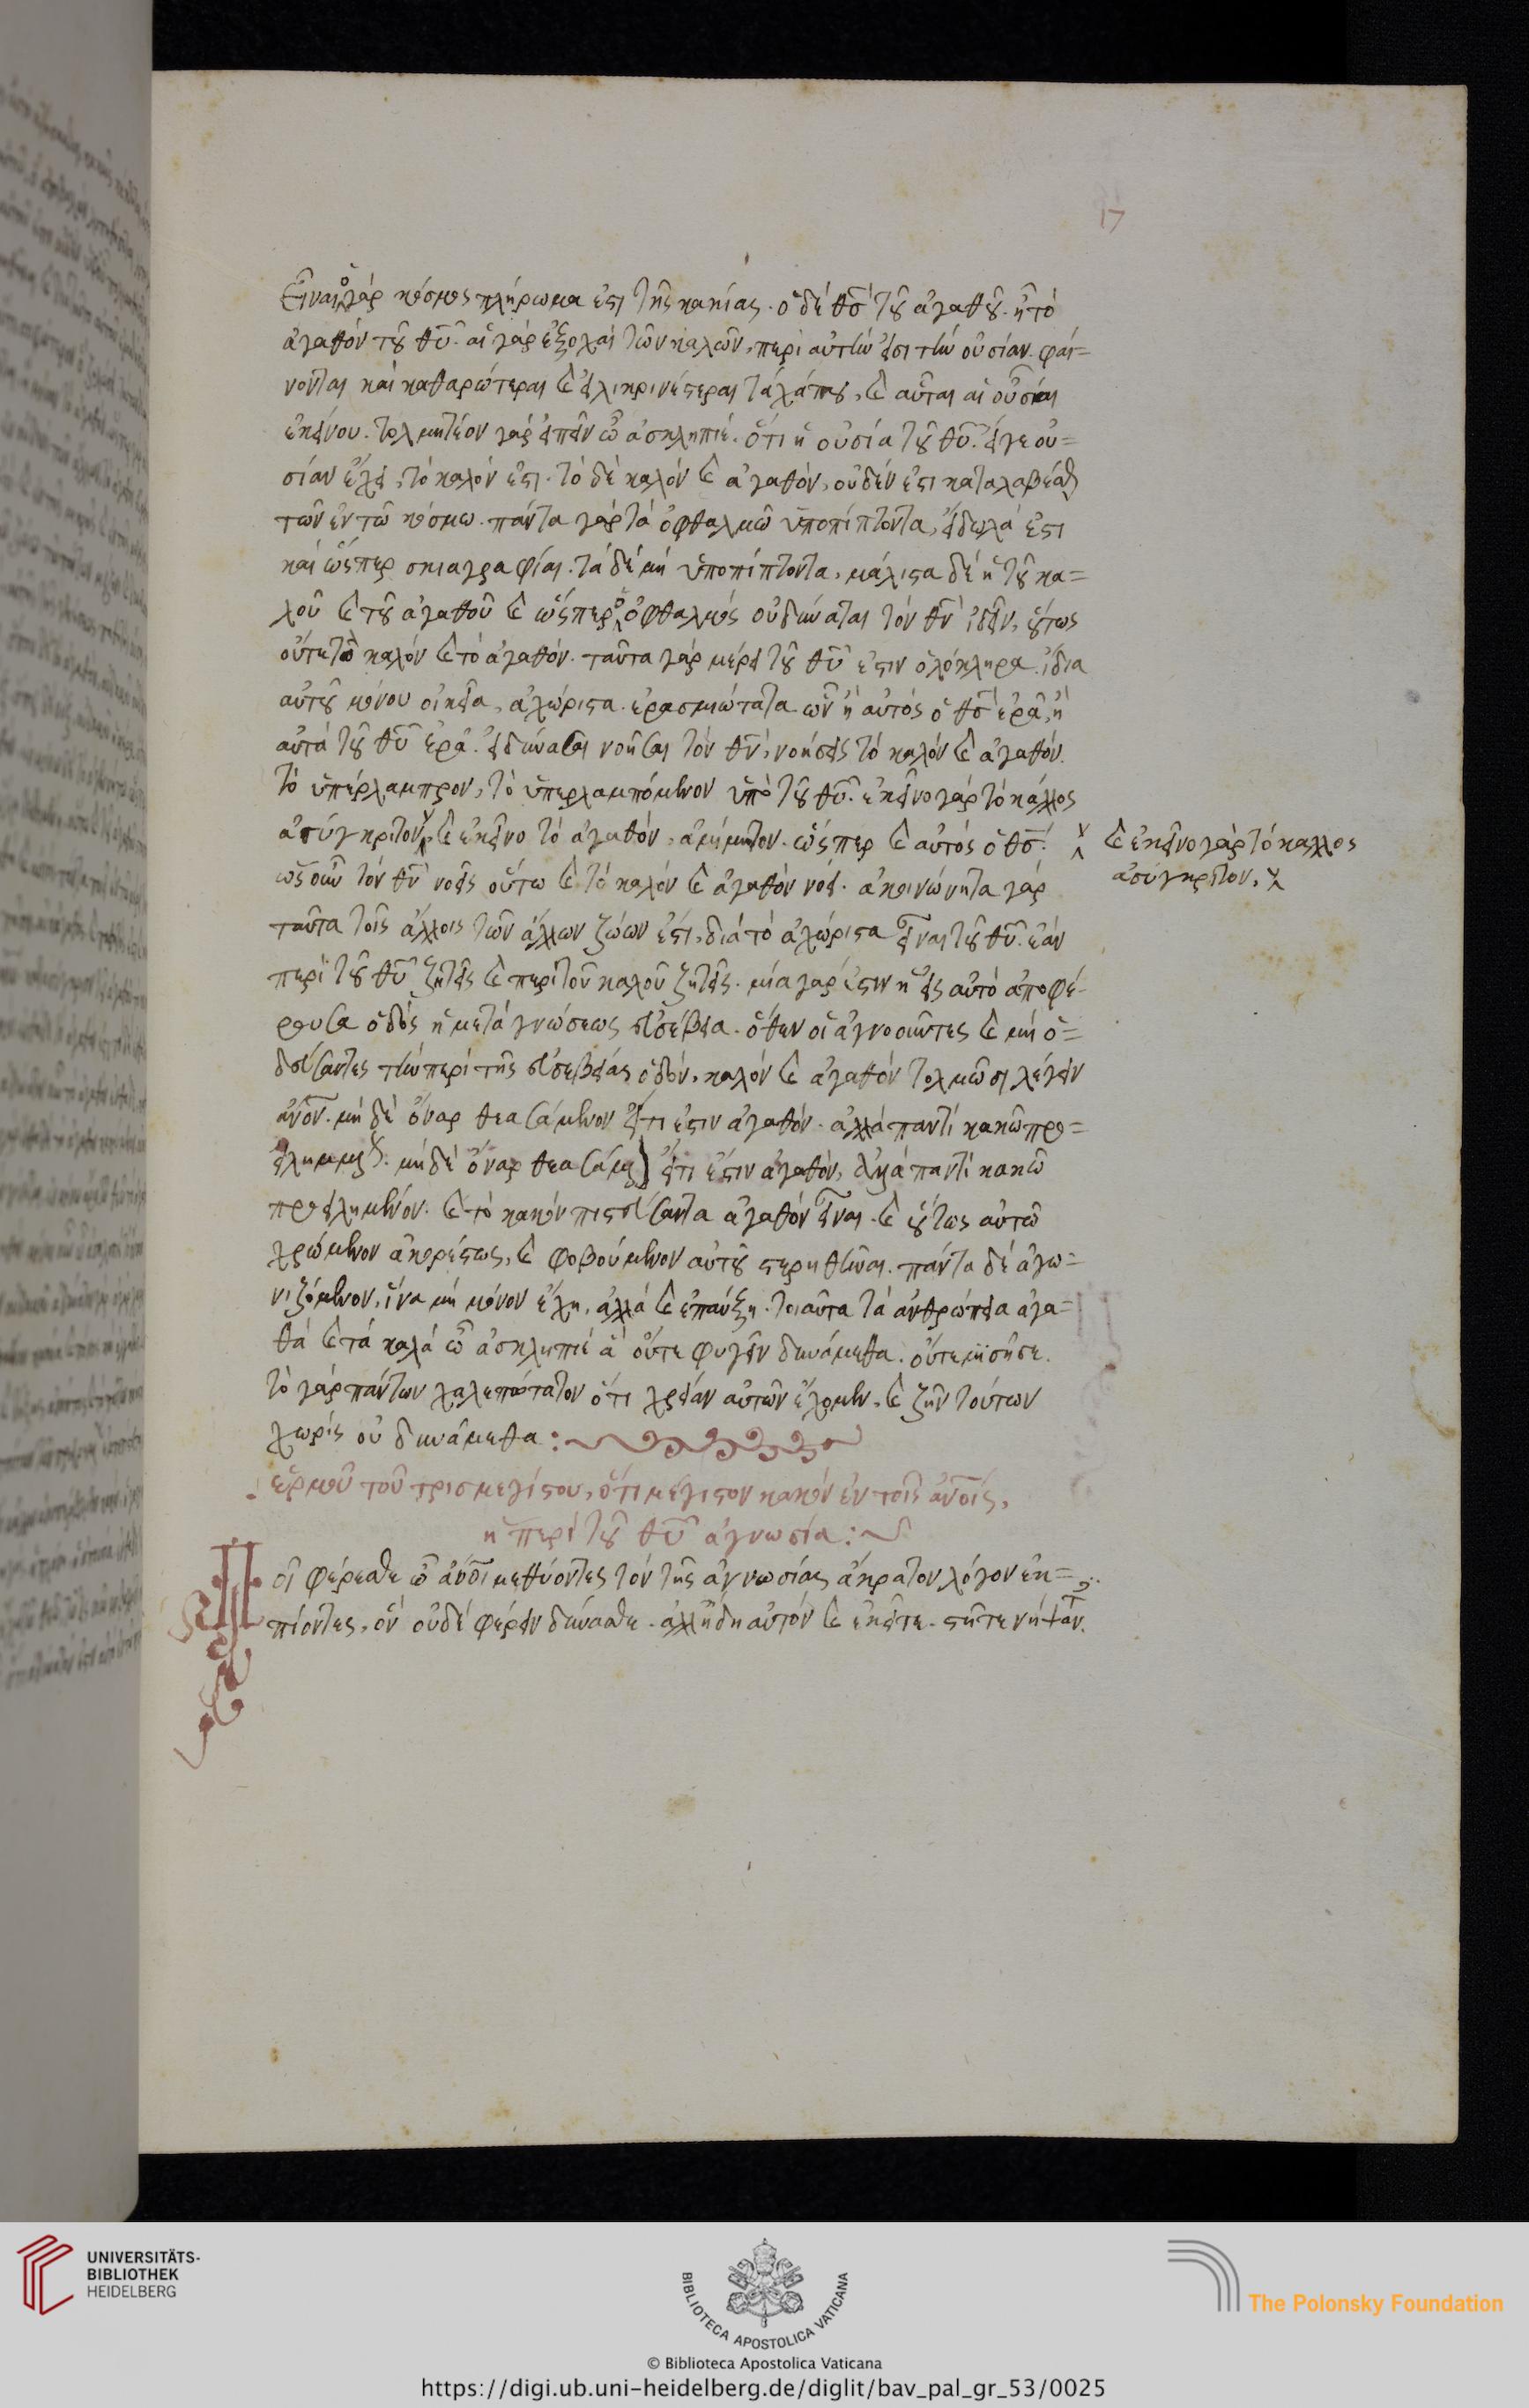 17
εἶναι ὁ γάρ κόσμος πλήρωμα ἐστι τῆς κακίας. ὁ δέ θσ̅ τοῦ ἀγαθοῦ. ἢ τό
ἀγαθόν τοῦ θυ̅. αἱ γάρ ἐξοχαί τῶν καλῶν, περί αὐτήν εἰσι τήν οὐσίαν. φαί=
νονται καί καθαρώτεραι καὶ εἰλικρινέστεραι τάχά που, καὶ αὗται αἱ οὐσίαι
ἐκείνου. τολμητέον γάρ εἰπεῖν ὦ ἀσκληπιέ. ὅτι ἡ οὐσία τοῦ θυ̅. εἴγε οὐ=
σίαν ἔχει, τό καλόν ἐστι. τό δέ καλόν καὶ ἀγαθόν, οὐδέν ἐστι καταλαβέσθαι
τῶν ἐν τῶ κόσμω. πάντα γάρ τά ὀφθαλμῶ ὑποπίπτοντα, εἴδωλά ἐστι
καί ὥσπερ σκιαγραφίαι. τά δέ μή ὑποπίπτοντα, μάλιστα δέ ἡ τοῦ κα=
λοῦ καὶ τοῦ ἀγαθοῦ καὶ ὥσπερ ὁ ὀφθαλμός οὐ δύναται τόν θν̅ ἰδεῖν, οὕτως
οὔτε τό καλόν καὶ τό ἀγαθόν. ταῦτα γάρ μέρει τοῦ θυ̅ ἐστιν ὁλόκληρα. ἴδια
αὐτοῦ μόνου οἰκεῖα, ἀχώριστα. ἐρασμιώτατα ὧν ἢ αὐτός ὁ θσ̅ ἐρᾶ, ἢ
αὐτά τοῦ θυ̅ ἐρᾶ. εἰ δύνασαι νοῆσαι τόν θν̅, νοήσεις τό καλόν καὶ ἀγαθόν.
τό ὑπέρλαμπρον, τό ὑπερλαμπόμενον ὑπό τοῦ θυ̅. ἐκεῖνο γάρ τό κάλλος
ἀσύγκριτον, καὶ ἐκεῖνο τό ἀγαθόν, ἀμίμητον. ὥσπερ καὶ αὐτός ὁ θσ̅.
καὶ ἐκεῖνο γάρ τό καλλος
ἀσύγκριτον,
ὡς οὖν τόν θν̅ νοεῖς οὕτω καὶ τό καλόν καὶ ἀγαθόν νόει. ἀκοινώνητα γάρ
ταῦτα τοῖς ἄλλοις τῶν ἄλλων ζώων ἐστι, διά τό ἀχώριστα εἶναι τοῦ θυ̅. ἐάν
περί τοῦ θυ̅ ζητεῖς καὶ περί τοῦ καλοῦ ζητεῖς. μία γάρ ἐστιν ἡ εἰς αὐτό ἀποφέ-
ρουσα ὁδός ἡ μετά γνώσεως εὐσέβεια. ὅθεν οἱ ἀγνοοῦντες καὶ μή ὁ=
δεύσαντες τήν περί τῆς εὐσεβείας ὁδόν, καλόν καὶ ἀγαθόν τολμῶσι λέγειν
ἀνον̅. μή δέ ὄναρ θεασάμενον εἴτι ἐστιν ἀγαθόν. ἀλλά παντί κακῶ προ=
μή δέ ὄναρ θεασάμ εἴτι ἐστιν ἀγαθόν, ἀλλά παντί κακῶ
προειλημένον. καὶ τό κακόν πιστεύσαντα ἀγαθόν εἶναι. καὶ οὕτως αὐτῶ
χρώμενον ἀκορέστως, καὶ φοβούμενον αὐτοῦ στερηθῆναι. πάντα δέ ἀγω=
νιζόμενον, ἵνα μή μόνον ἔχη, ἀλλά καὶ ἐπαύξη. τοιαῦτα τά ἀνθρώπεια ἀγα=
θά καὶ τά καλά ὦ ἀσκληπιέ ἅ οὔτε φυγεῖν δυνάμεθα. οὔτε μισῆσε.
τό γάρ πάντων χαλεπώτατον ὅτι χρείαν αὐτῶν ἔχομεν, καὶ ζῆν τούτων
χωρίς οὐ δυνάμεθα:
ἑρμοῦ τοῦ τρισμεγίστου, ὅτι μέγιστον κακόν ἐν τοῖς ἀνοις̅,
ἡ περί τοῦ θυ̅ ἀγνωσία:
Ποῖ φέρεσθε ὦ ἀνοι̅ μεθύοντες τόν τῆς ἀγνωσίας ἄκρατον λόγον ἐκ=
πίοντες, ὅν οὐδέ φέρειν δύνασθε. ἀλλ ἤδη αὐτόν καὶ ἐμεῖτε. στῆτε νήψαν.
UNIVERSITÄTS-
BIBLIOTHEK
HEIDELBERG
BIBLIOTECA APOSTOLICA VATICANA
The Polonsky Foundation
© Biblioteca Apostolica Vaticana
https://digi.ub.uni-heidelberg.de/diglit/bav_pal_gr_53/0025